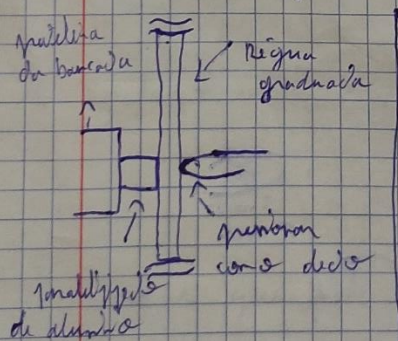 prateleira
da bancada
Régua
graduada
pressionar
com o dedo
paralelepípedo
de alumínio